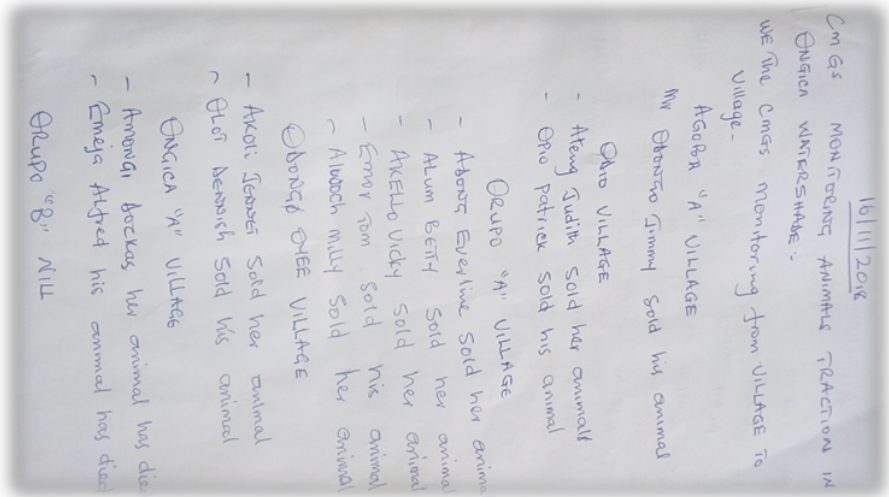 16/11/2018
CMGS MONITORING ANIMALS TRACTION IN
ONGICA WATERSHADE:-
WE The CMGS monitoring from VILLAGE TO
Village-
AGOBA "A" VILLAGE
Mr OBONGO Jimmy Sold his animal
ODIO VILLAGE
- Ateng Judith Sold her animals
- OPIO Patrick Sold his animal
ORUPO "A" VILLAGE
- ADONG Everline Sold her anima
- ALUM BETTY Sold her animal
- AKELLO Vicky Sold her animal
- Emor Tom Sold his animal
- Alwoch Milly Sold her animal
OBONGO OYEE VILLAGE
- AKOLI Sold her animal
- OLOT DENNISH Sold his animal
ONGICA "A" VILLAGE
- AMONGI Dockas her animal has die
- Emeja Alfred his animal has died
ORUPO "B" NILL